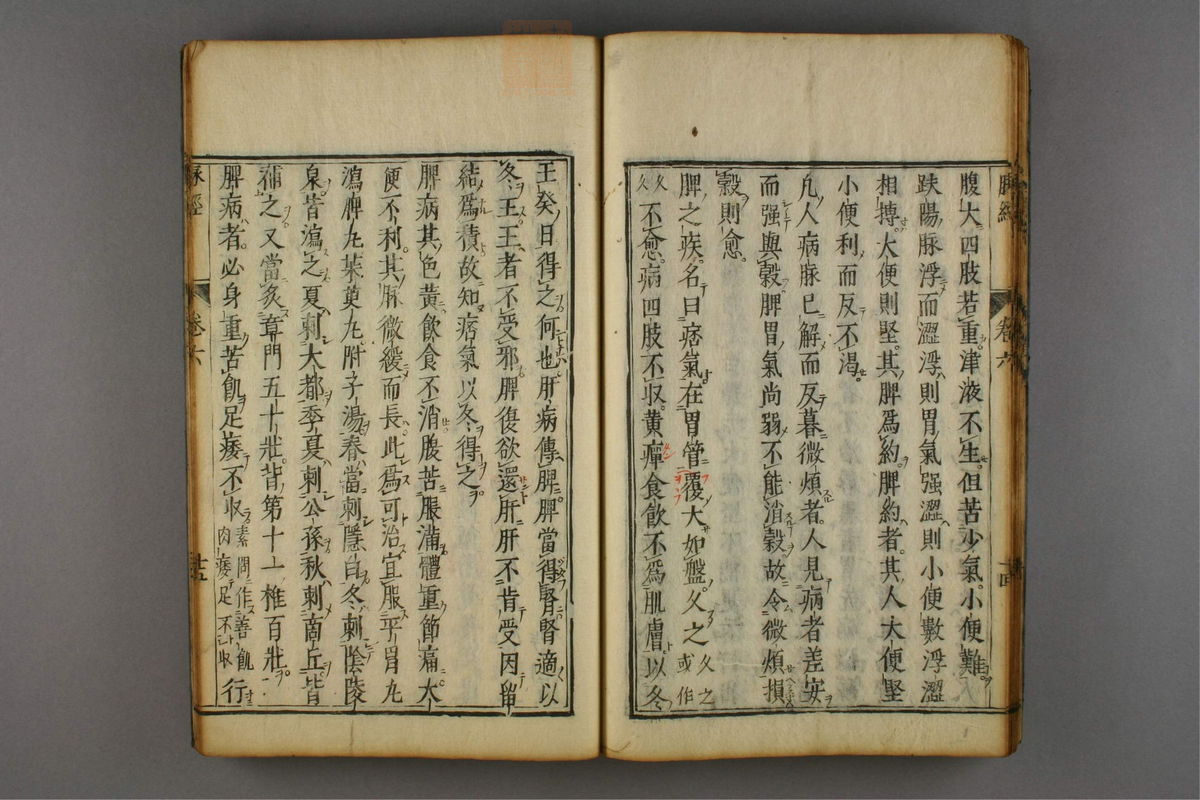 腹大四肢若重津液不生但苦少氣小便難
趺陽脉浮而澀浮則胃氣强澀則小便數浮澀
相搏大便則堅其脾爲約脾約者其人大便堅
小便利而反不渴
凡人病脉已解而反暮微煩者人見病者差安
而强與穀脾胃氣尚弱不能消穀故令微煩損
穀則愈
脾之疾名曰痞氣在胃管覆大如盤久之久之或作
久久不愈病四肢不收黄癉食飲不爲肌膚以冬
脉經 卷六 十四
王癸日得之何也肝病傳脾脾當傳腎腎適以
冬王王者不受邪脾復欲還肝肝不肯受因留
結爲積故知痞氣以冬得之
脾病其色黄飲食不消腹苦脹滿體重節痛大
便不利其脉微緩而長此爲可治宜服平胃丸
瀉脾丸茱萸丸附子湯春當刺隱白冬刺陰陵
泉皆瀉之夏刺大都季夏刺公孫秋刺商丘皆
補之又當炙章門五十壯背第十一椎百壯
脾病者必身重苦飢足痿不收素問作善飢肉痿足不收行
脉經 卷六 十五